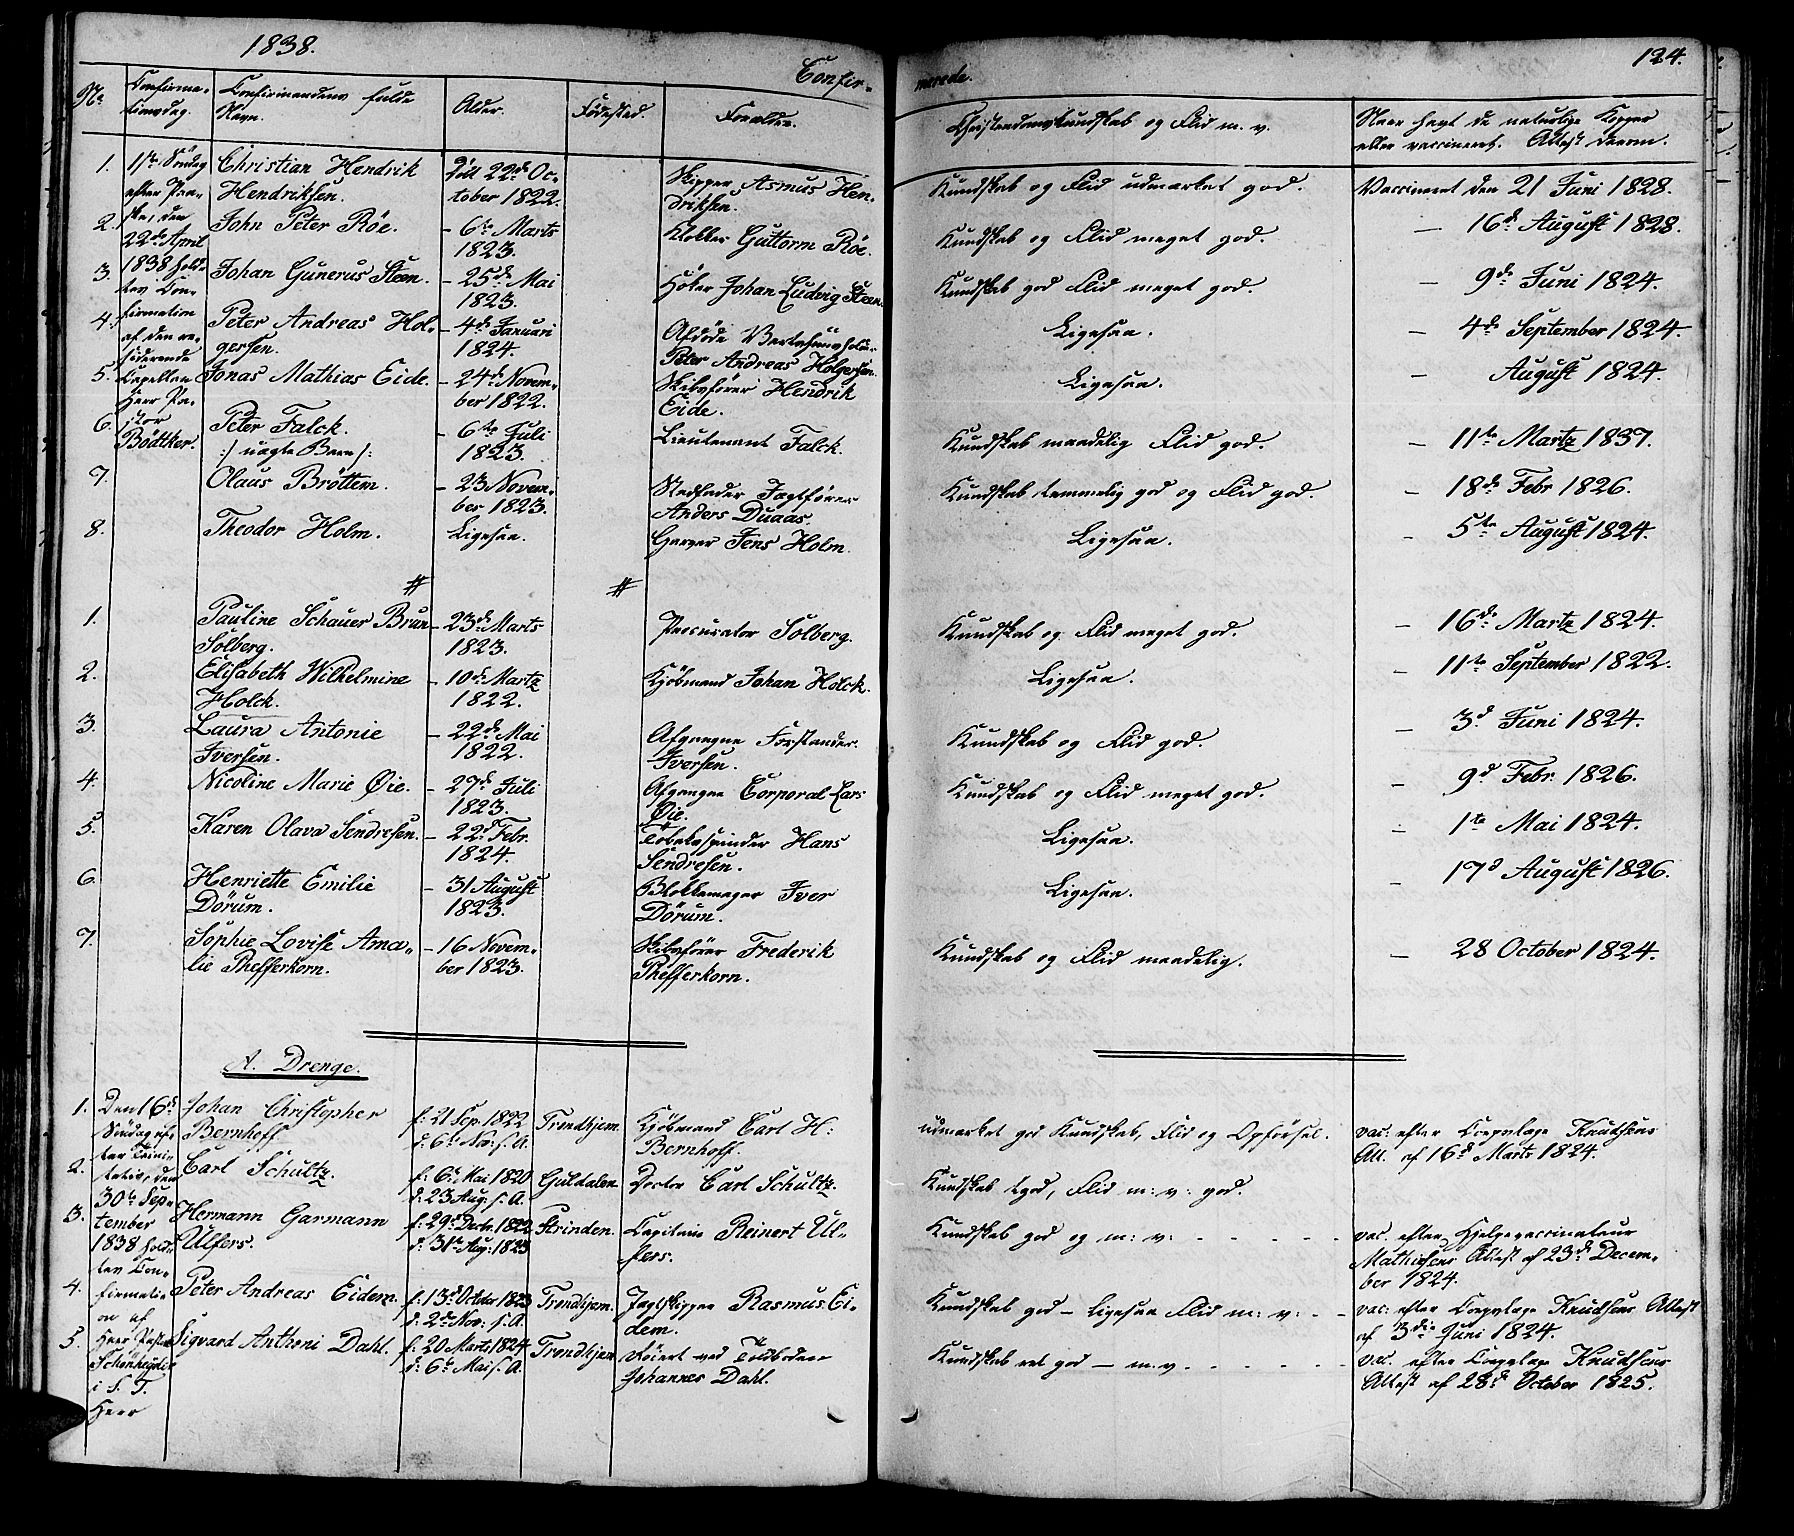 1838.
Confir-
merede.
124.
No
Confirma-
tionsdag.
Confirmandens fulde
Navn.
Alder.
Födested.
Forældre.
Christendomskundskab og Flid m. v.
Naar havt de naturlige Kopper
eller vaccineret. Attest derom.
1. 1ste Söndag
efter Paa-
ske, den
22de April
1838 holdt
tes Con-
firmation
af den re-
siderende
Capellan
Herr Pa-
stor
Bödtker.
Christian Hendrik
Hendriksen.
födt 22de Oc-
tober 1822.
Skipper Asmus Hen-
driksen.
Kundskab og Flid udmærket god.
Vaccineret den 21 Juni 1828.
2. John Peter Röe.
- 6te Marts
1823.
Klokker Guttorm Röe.
Kundskab og Flid meget god.
- 16de August 1828.
3. Johan Gunerus Steen.
- 25de Mai
1823.
Höker Johan Ludvig Steen.
Kundskab god Flid meget god.
- 9de Juni 1824.
4. Peter Andreas Hol-
gersen.
- 4de Januari
1824.
Afdöde Vertshuusholder
Peter Andreas Holgersen.
Ligesaa.
- 4de September 1824.
5. Jonas Mathias Eide.
- 24de Novem-
ber 1822.
Skibsförer Hendrik
Eide.
Ligesaa.
- August 1824.
6. Peter Falck.
:/ uægte Barn /:
- 6te Juli
1823.
Lieutenant Falck.
Kundskab maadelig Flid god.
- 11te Martz 1837.
7. Olaus Bröttem.
- 23 Novem-
ber 1823.
Stedfader Jagtförer
Anders Duaas.
Kundskab temmelig god og Flid god.
- 18de Febr 1826.
8. Theodor Holm.
Ligesaa.
Garver Jens Holm.
Ligesaa.
- 5te August 1824.
# #
1. Pauline Schauer Brun
Solberg.
- 23de Marts
1823.
Procurator Solberg.
Kundskab og Flid meget god.
- 16de Martz 1824.
2. Elisabeth Wilhelmine
Holck.
- 10de Martz
1822.
Kjöbmand Johan Holck.
Ligesaa.
- 11te September 1822.
3. Laura Antonie
Iversen.
- 22de Mai
1822.
Afgangne Forstander
Iversen.
Kundskab og Flid god.
- 3d Juni 1824.
4. Nicoline Marie Øie.
- 27de Juli
1823.
Afgangne Corporal Lars
Øie.
Kundskab og Flid meget god.
- 9d Febr. 1826.
5. Karen Olava Sendresen.
- 22d Febr.
1824.
Tobakspinder Hans
Sendresen.
Ligesaa.
- 1te Mai 1824.
6. Henriette Emilie
Dörum.
- 31 August
1823.
Blokkemager Iver
Dörum.
Ligesaa.
- 17d August 1826.
7. Sophie Lovise Ama-
lie Phefferkorn.
- 16 Novem-
ber 1823.
Skibsförer Frederik
Phefferkorn.
Kundskab og Flid maadelig.
- 28 October 1824.
A. Drenge.
1. Den 16de
Söndag ef-
ter Trini-
tatis, den
30te Sep-
tember
1838 holdt
tes Con-
firmati-
on af
Herr Pastor
Schönheyder
i S. T.
Herr
Johan Christopher
Bernhoff.
f: 21 Sep. 1822
d: 6te Nov: s. A.
Trondhjem.
Kjöbmand Carl H:
Bernhoff.
udmærket god Kundskab, Flid og Opförsel.
vac: efter Corpslæge Knudsens
Att. af 16d Marts 1824.
2. Carl Schultz.
f: 6te Mai 1820
d: 23 Aug: s. A.
Guldalen.
Doctor Carl Schultz.
Kundskab tgod, Flid m: v: god.
3. Hermann Garmann
Ulfers.
f: 29de Decbr. 1822
d: 31te Aug: 1823
Strinden.
Capitain Reinert Ul-
fers.
Kundskab god og m: v: - - - - -
vac. efter Hjelpevaccinateur
Mathisens Attest af 23de Decem-
ber 1824.
4. Peter Andreas Eidem.
f: 13d October 1823
d: 2den Nov: s. A.
Trondhjem.
Jagtskipper Rasmus Ei-
dem.
Kundskab god - Ligesaa Flid m: v: - -
vac: efter Corpslæge Knudsens Attest
af 3die Juni 1824.
5. Sigvard Anthoni Dahl.
f: 20 Marts 1824
d: 6te Mai s. A.
Trondhjem
ved Toldboden
Johannes Dahl.
Kundskab ret god - m. v. - - - - -
vac. efter Corpslæge Knudsens
Attest af 28de October 1825.